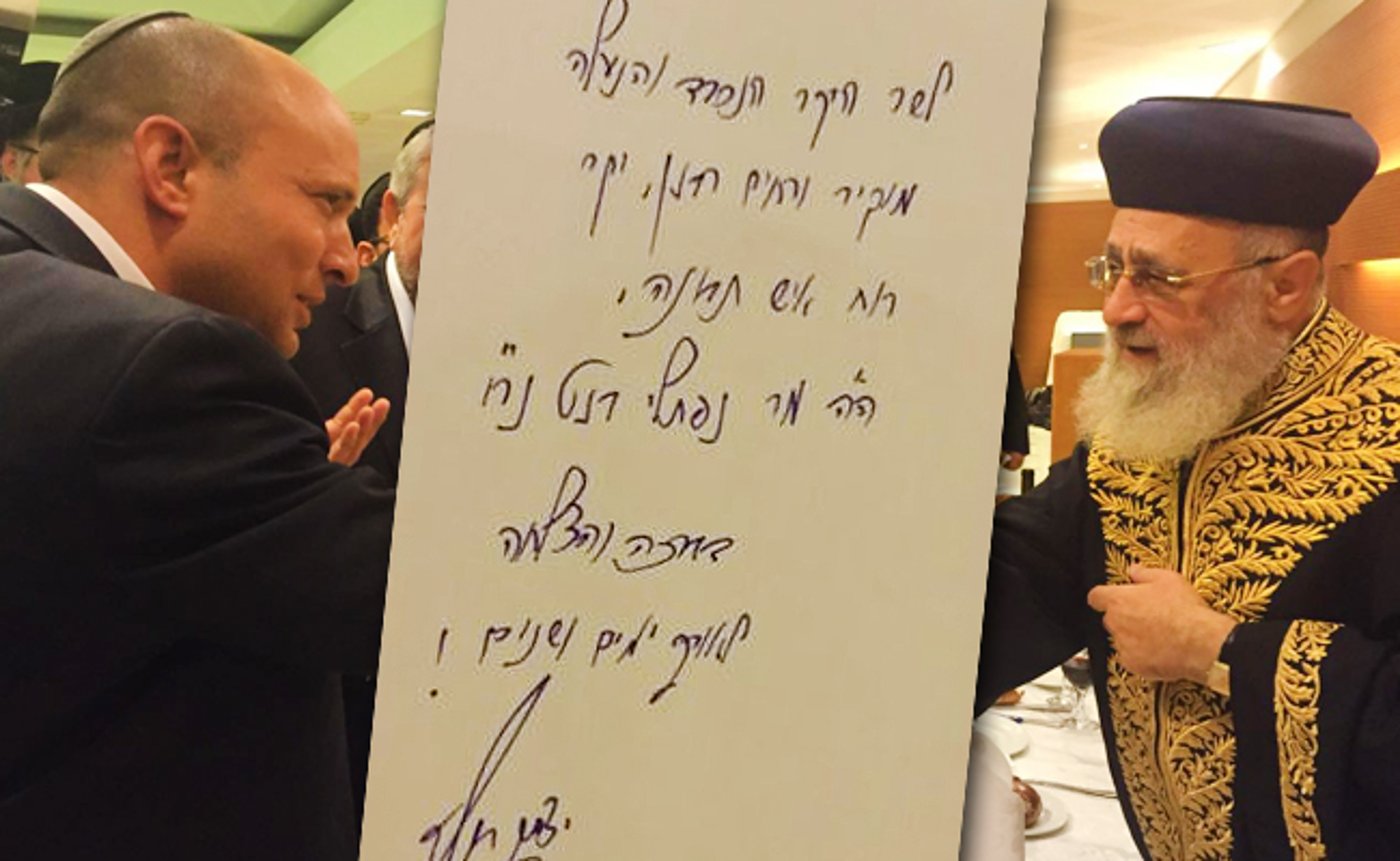 לשר היקר הנכבד והנעלה
מוקיר ורחים רבנן, יקר
רוח איש תבונה,
ה"ה מר נפתלי בנט נר"ו
ברכה והצלחה
לאורך ימים ושנים !
יצחק יוסף